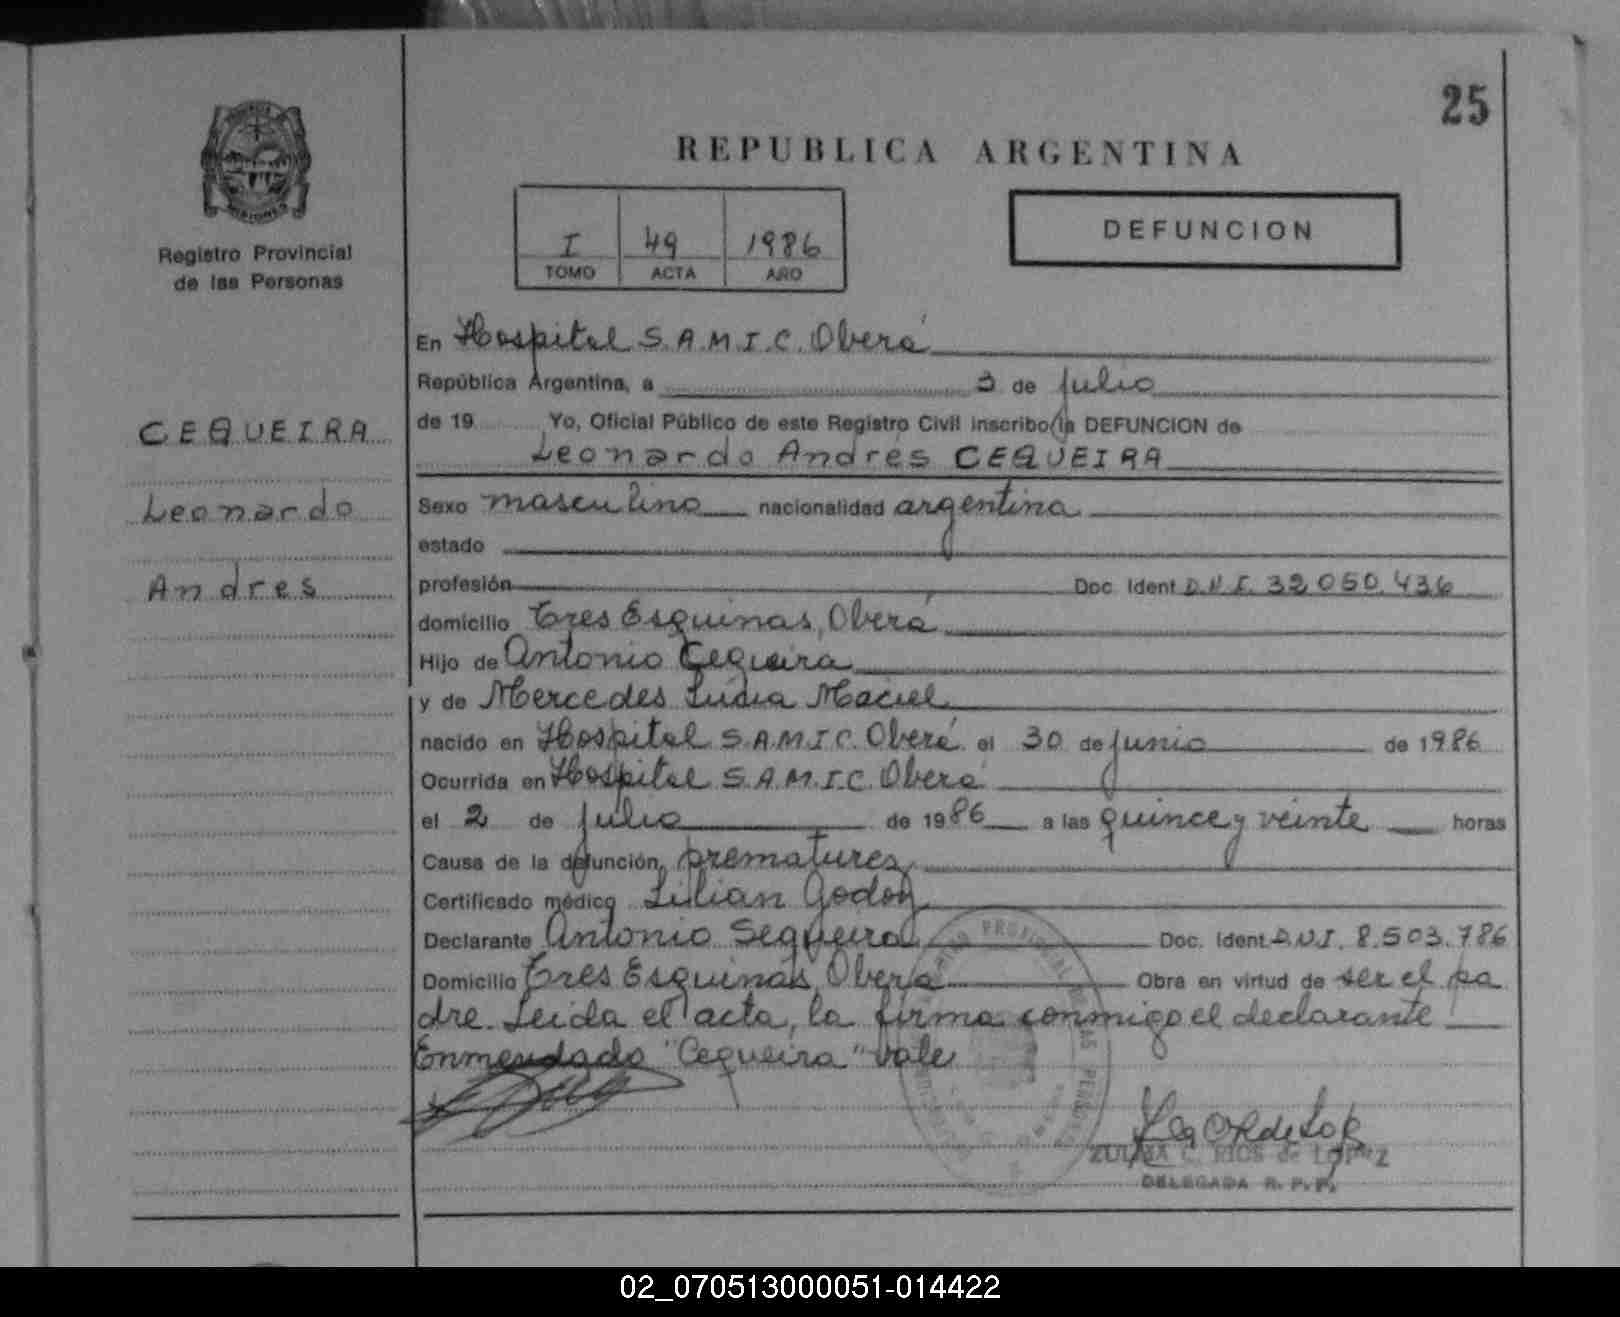 25
REPUBLICA ARGENTINA
MISIONES
Registro Provincial
de las Personas
I 49 1986
TOMO ACTA AÑO
DEFUNCION
CEQUEIRA
Leonardo
Andres
En Hospital S.A.M.I.C. Oberá
República Argentina, a 3 de julio
de 19 Yo, Oficial Público de este Registro Civil inscribo la DEFUNCION de
Leonardo Andrés CEQUEIRA
Sexo masculino nacionalidad argentina
estado
profesión Doc. Ident D.N.I. 32.050.436
domicilio Tres Esquinas, Oberá
Hijo de Antonio Cequeira
y de Mercedes Lidia Maciel
nacido en Hospital S.A.M.I.C. Oberá el 30 de junio de 1986
Ocurrida en Hospital S.A.M.I.C. Oberá
el 2 de julio de 1986 a las quince y veinte horas
Causa de la defunción, prematurez
Certificado médico Lilian Godoy
Declarante Antonio Sequeira Doc. Ident D.N.I. 8.503.786
Domicilio Tres Esquinas, Oberá Obra en virtud de ser el pa
dre. Leida el acta, la firma conmigo el declarante
Enmendado "Cequeira" vale
ZULMA C. RIOS de LOPEZ
DELEGADA R. P. P.
02_070513000051-014422